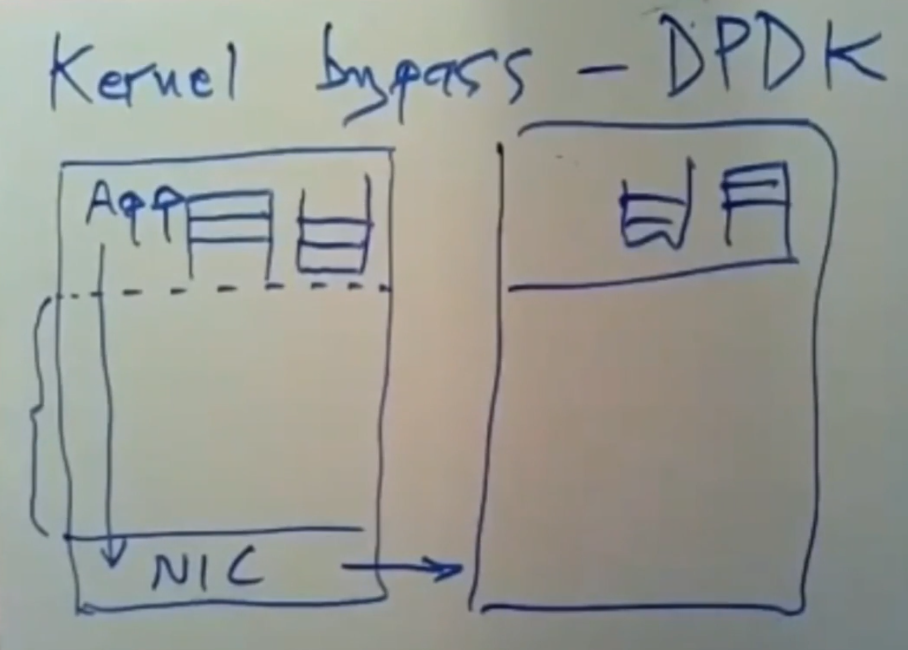 Kernel bypass - DPDK
App
NIC